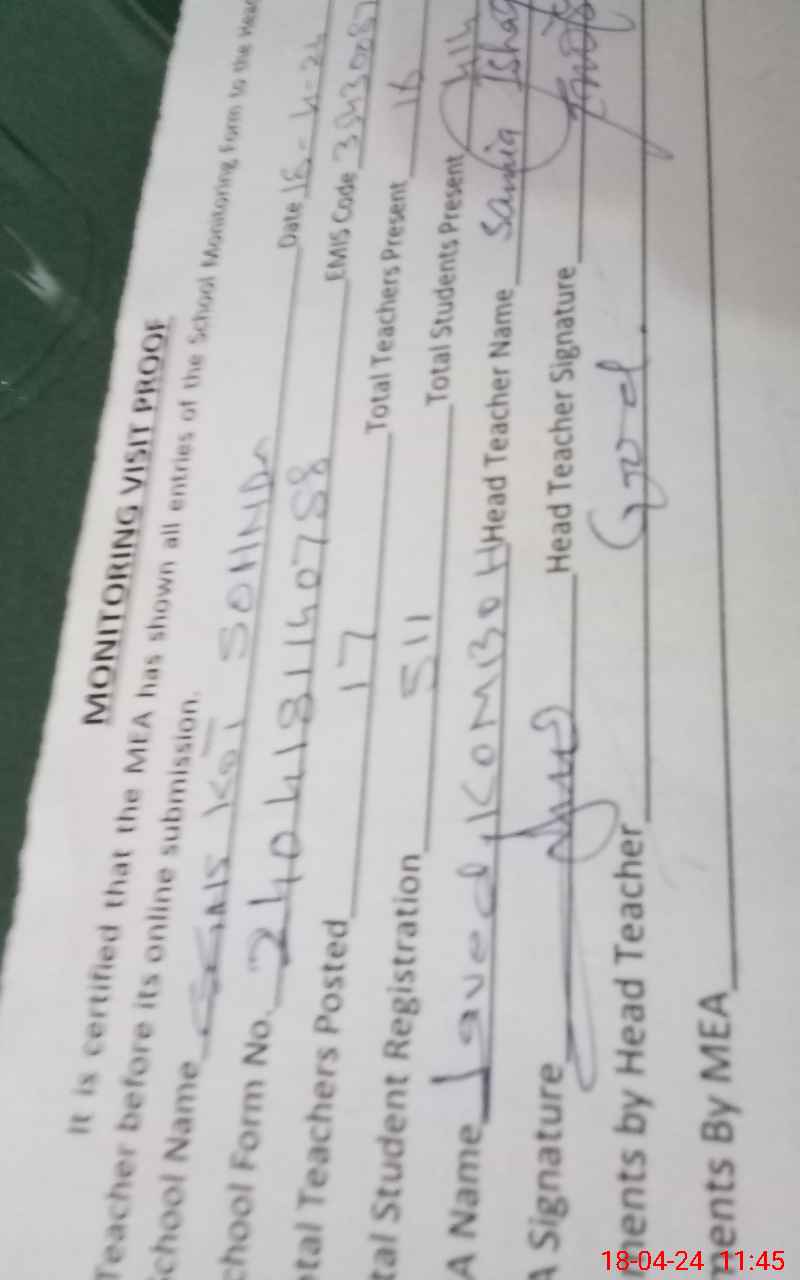 MONITORING VISIT PROOF
It is certified that the MEA has shown all entries of the School Monitoring Form to the Head
Teacher before its online submission.
School Name KOT SOHNDA Date 18-4-24
chool Form No. EMIS Code
tal Teachers Posted 17 Total Teachers Present 16
tal Student Registration 511 Total Students Present 414
A Name Javed KOMBOH Head Teacher Name Samia Ishaq
A Signature Head Teacher Signature
nents by Head Teacher Good.
nents By MEA
18-04-24 11:45